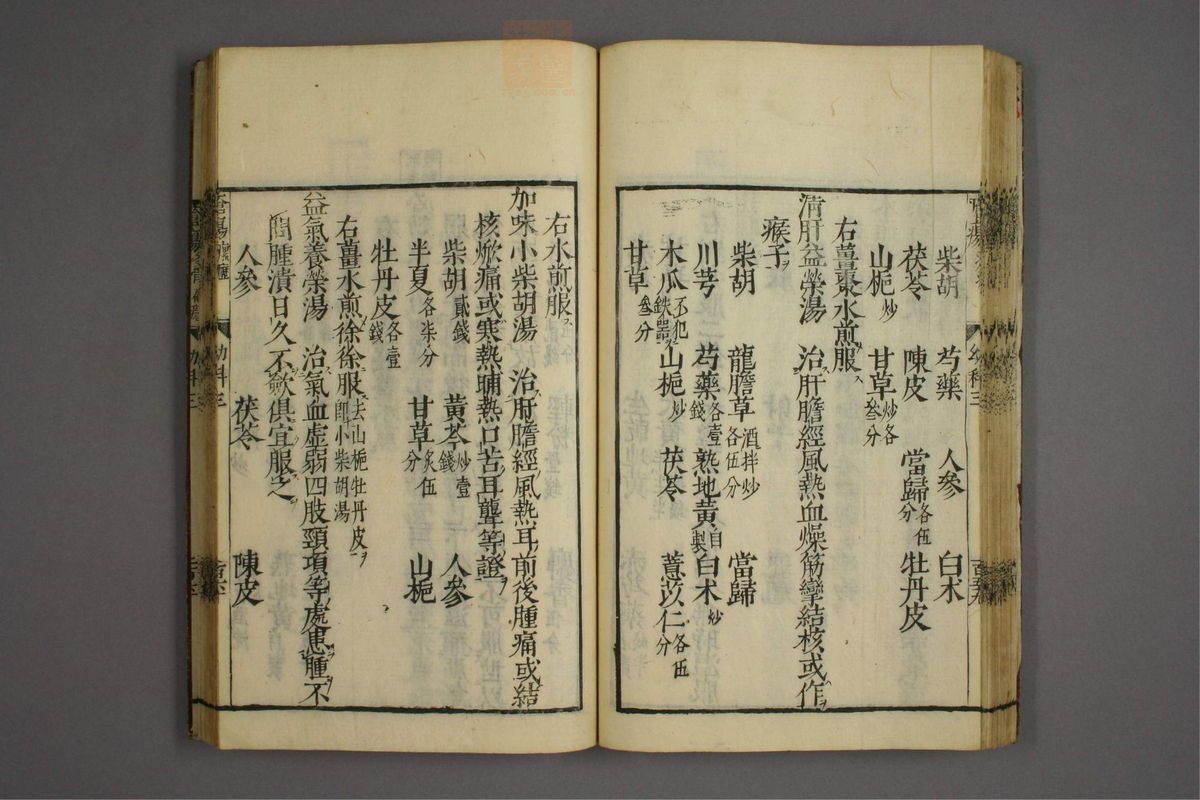 柴胡 芍藥 人參 白朮
茯苓 陳皮 當歸各伍分 牡丹皮
山梔炒 甘草炒各叁分
右薑棗水煎服
清肝益榮湯 治肝膽經風熱血燥筋攣結核或作
瘊子
柴胡 龍膽草酒拌炒各伍分 當歸
川芎 芍藥各壹錢 熟地黃自製 白朮炒
木瓜不犯鉄器 山梔炒 茯苓 薏苡仁各伍分
甘草叁分
右水煎服
加味小柴胡湯 治肝膽經風熱耳前後腫痛或結
核焮痛或寒熱晡熱口苦耳聾等證
柴胡貳錢 黃芩炒壹錢 人參
半夏各柒分 甘草炙伍分 山梔
牡丹皮各壹錢
右薑水煎徐徐服去山梔牡丹皮即小柴胡湯
益氣養榮湯 治氣血虛弱四肢頸項等處患腫不
問腫潰日久不歛俱宜服之
人參 茯苓 陳皮
幼科三
幼科三